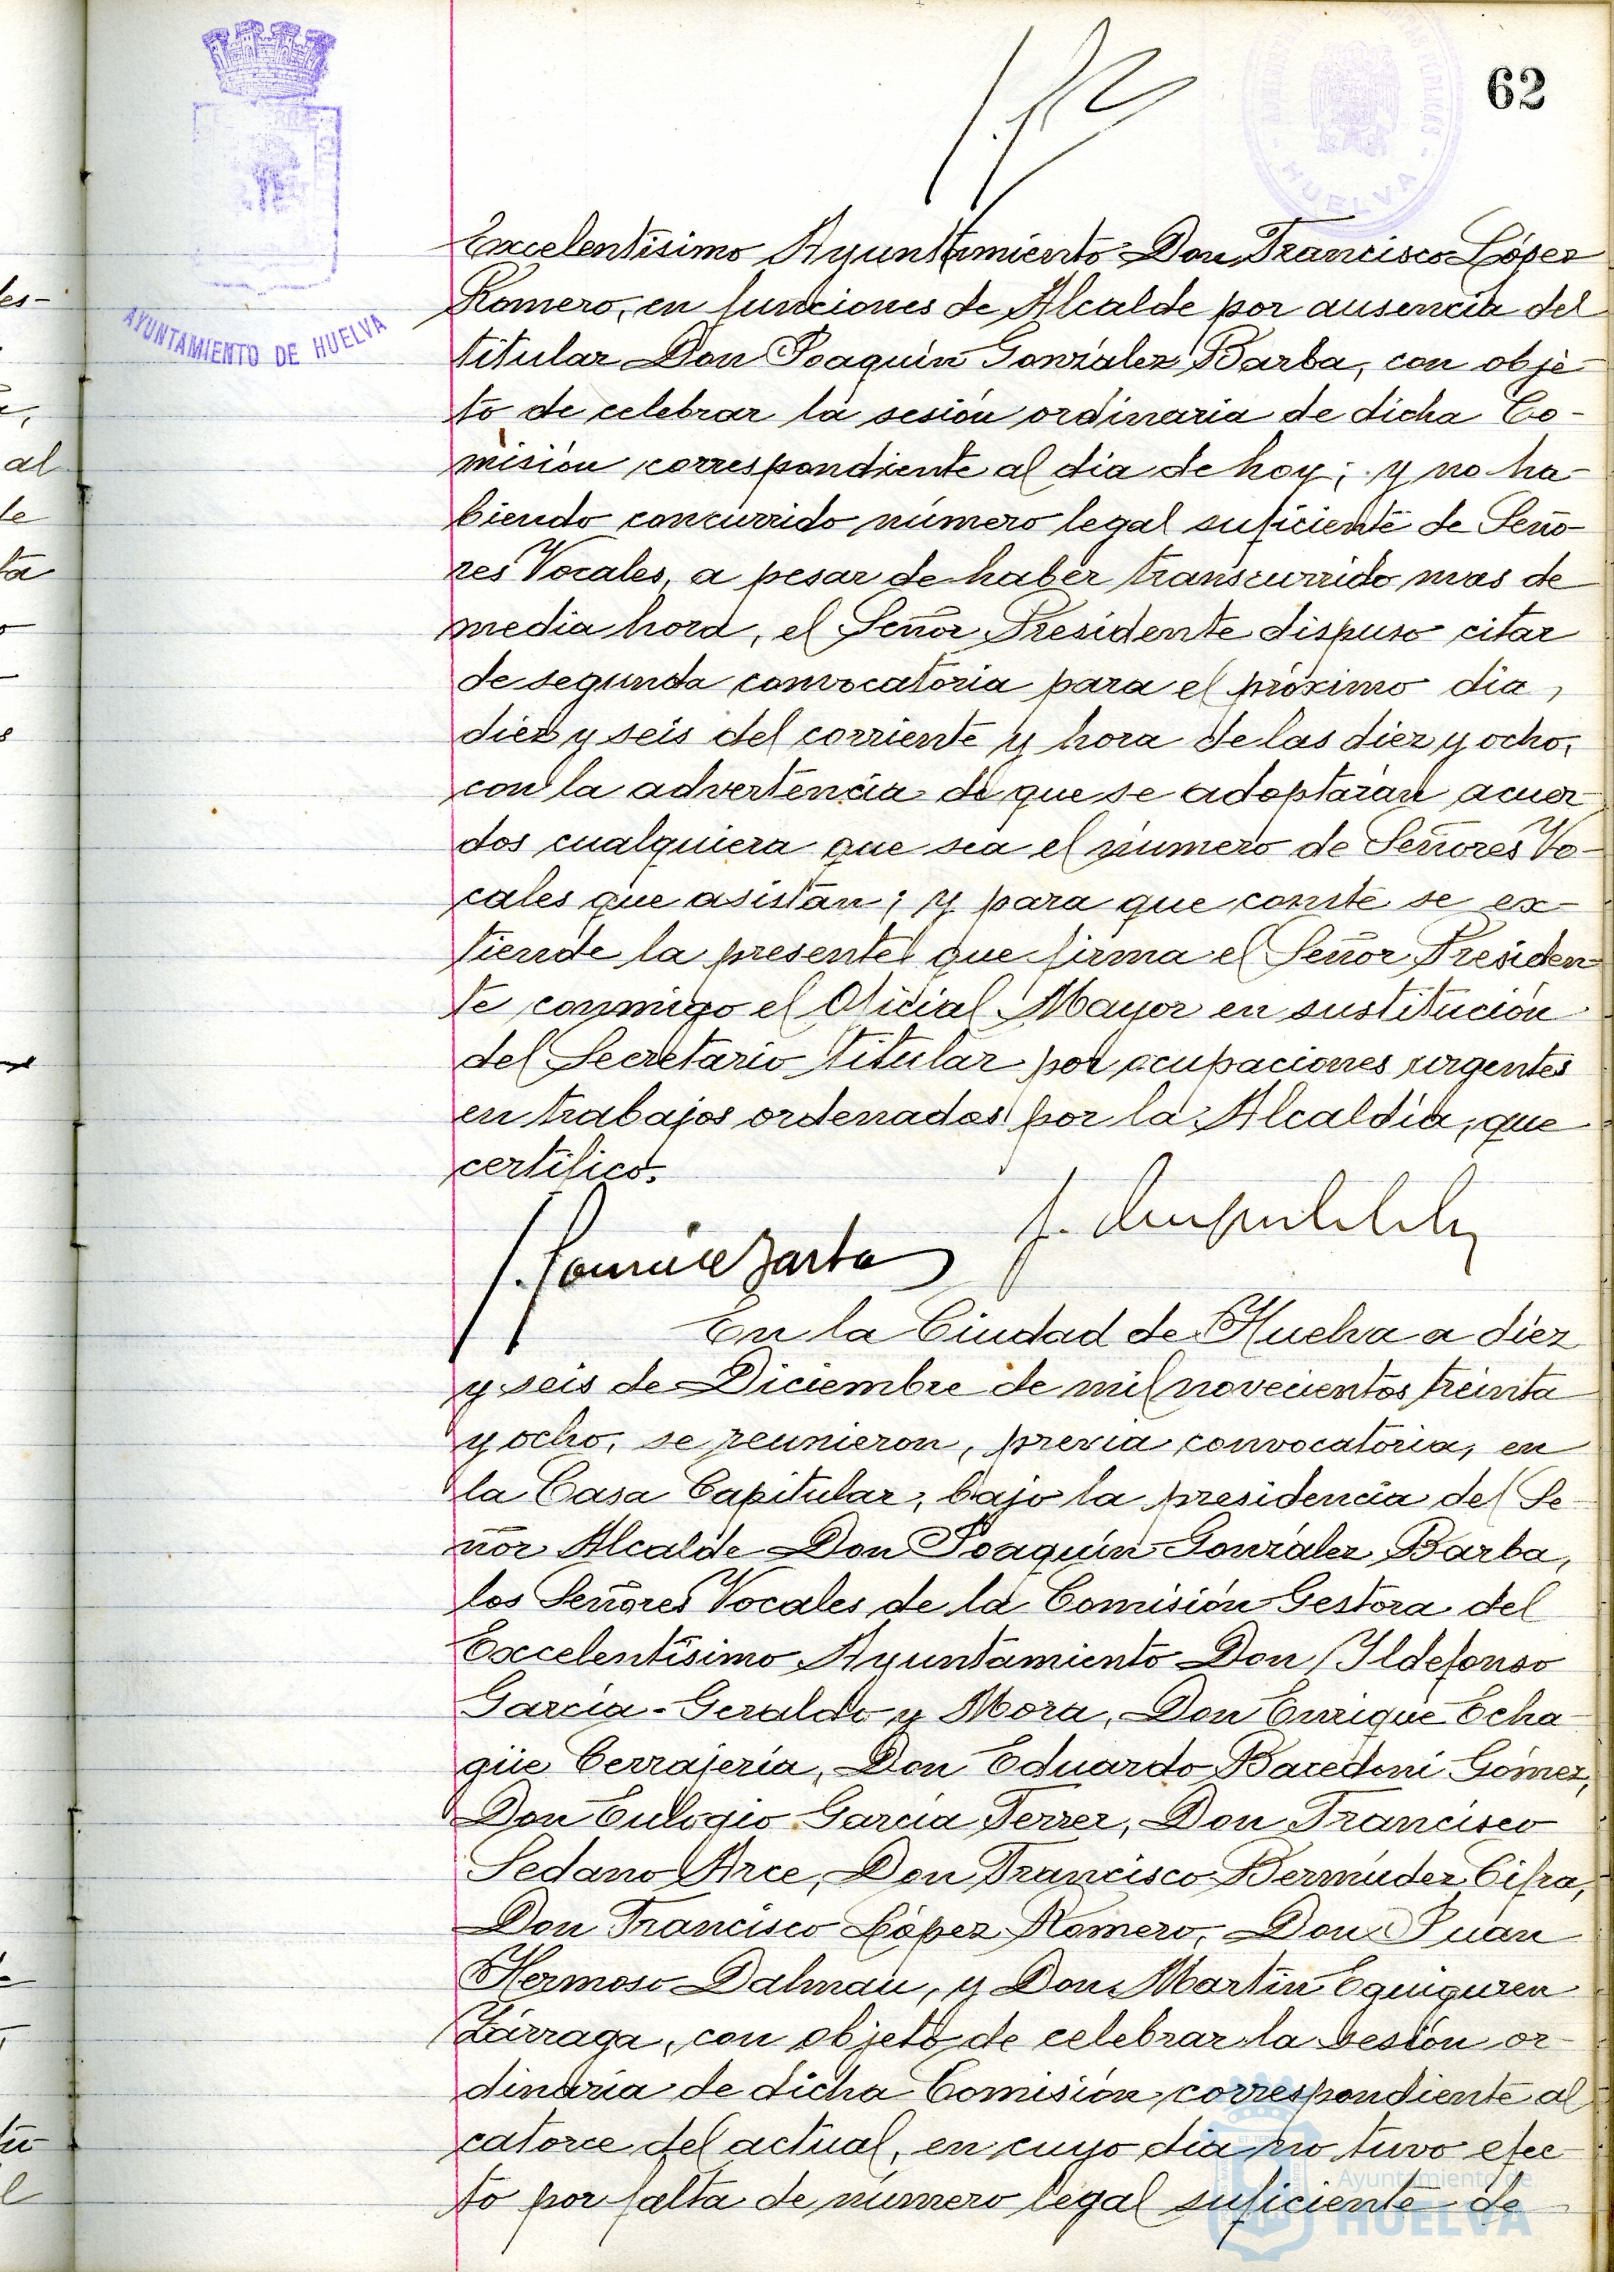 62
AYUNTAMIENTO DE HUELVA
HUELVA
Excelentísimo Ayuntamiento Don Francisco López
Romero, en funciones de Alcalde por ausencia del
titular Don Joaquín González Barba, con obje-
to de celebrar la sesión ordinaria de dicha Co-
misión correspondiente al día de hoy; y no ha-
biendo concurrido número legal suficiente de Seño-
res Vocales, a pesar de haber transcurrido mas de
media hora, el Señor Presidente dispuso citar
de segunda convocatoria para el próximo día,
diez y seis del corriente y hora de las diez y ocho,
con la advertencia de que se adoptarán acuer-
dos cualquiera que sea el número de Señores Vo-
cales que asistan; y para que conste se ex-
tiende la presente que firma el Señor Presiden-
te conmigo el Oficial Mayor en sustitución
del Secretario titular por ocupaciones urgentes
en trabajos ordenados por la Alcaldía, que
certifico.
En la Ciudad de Huelva a diez
y seis de Diciembre de mil novecientos treinta
y ocho, se reunieron, previa convocatoria, en
la Casa Capitular, bajo la presidencia del Se-
ñor Alcalde Don Joaquín González Barba,
los Señores Vocales de la Comisión Gestora del
Excelentísimo Ayuntamiento Don Ildefonso
García-Geraldo y Mora, Don Enrique Echa-
güe Cerrajería, Don Eduardo Bacedoni Gómez,
Don Eulogio García Ferrer, Don Francisco
Sedano Arce, Don Francisco Bermúdez Cifra,
Don Francisco López Romero, Don Juan
Hermoso Dalmau, y Don Martín Eguiguren
Zárraga, con objeto de celebrar la sesión or-
dinaria de dicha Comisión correspondiente al
catorce del actual, en cuyo día no tuvo efec-
to por falta de número legal suficiente de
Ayuntamiento de
HUELVA